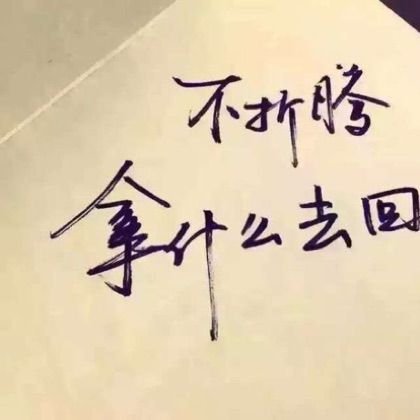 不折腾
拿什么去回